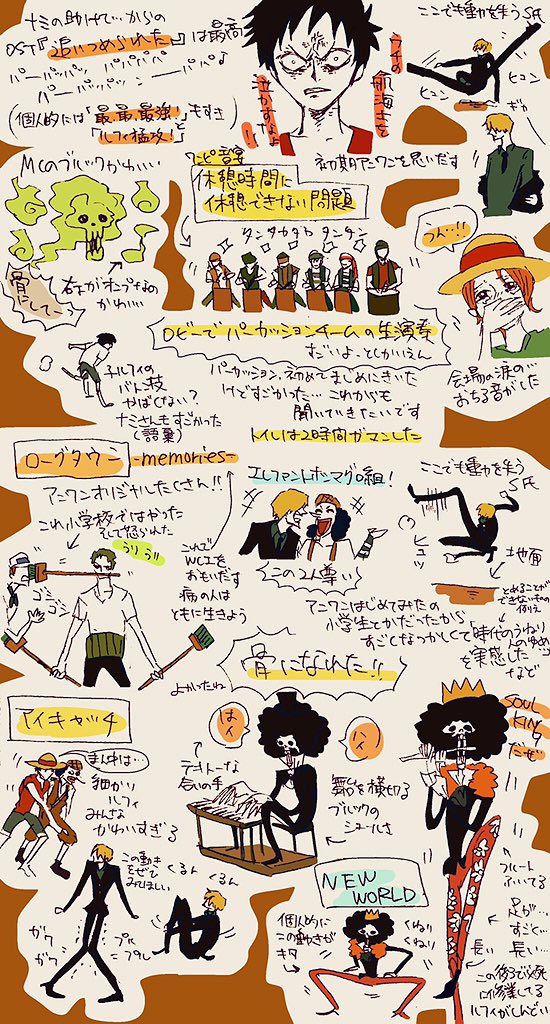 ナミの助けて…からの
OST『追いつめられた』は最高
パーパーパッ パパパパ
パーパーパパッ ー パパよ
(個人的には「最、最、最強!」もすき
「ルフィ猛攻!」と
ウチの
航海士を
泣かすなよ
ここでも重力を失うS氏
ヒュン
ヒュン
MCのブルックかわいい
ワンピ音宴
休憩時間に
休憩できない問題
初期アニワンを思いだす
タンタカタカ タンタン
うん…!!
骨にしてー
かわいい
ロビーでパーカッションチームの生演奏
すごいよ
会場の涙の…
おちる音がした
子ルフィの
バトン技
やばくない?
ナミさんもすごかった
(語彙)
パーカッション、初めてまじめにきいた
けどすごかった… これからも
聞いていきたいです
トイレは2時間ガマンした
ローグタウン -memories-
アニワンオリジナルたくさん!!
これ小学校ではやった
そして怒られた
うりうり!
ゴン
ゴン
これで
WCIを
おもいだす
病の人は
ともに生きよう
エレファントホンマグロ組!
この2人尊い
ここでも重力を失う
S氏
ヒュッ
地面
とめることが
できないものの
例え
アニワンはじめてみたの
小学生とかだったから
すごくなつかしくて「時代のうねり
人のゆめ」
を実感した
など
骨になれた!!
よかったね
アイキャッチ
まん中は…
細かい
ルフィ
みんな
かわいすぎる
はイ
ハイ
テキトーな
合いの手
舞台を横切る
ブルックの
シュールさ
SOUL
KING
だぜ
フルート
ふいてる
足が…
すごく…
長い
長い…
この後ろで必死
に修業してる
ルフィがしんどい
この動き
をぜひ
みてほしい
くるん
くるん
ガク
ガク
プル
プル
NEW
WORLD
個人的に
この動きが
キタ
くねり
くねり